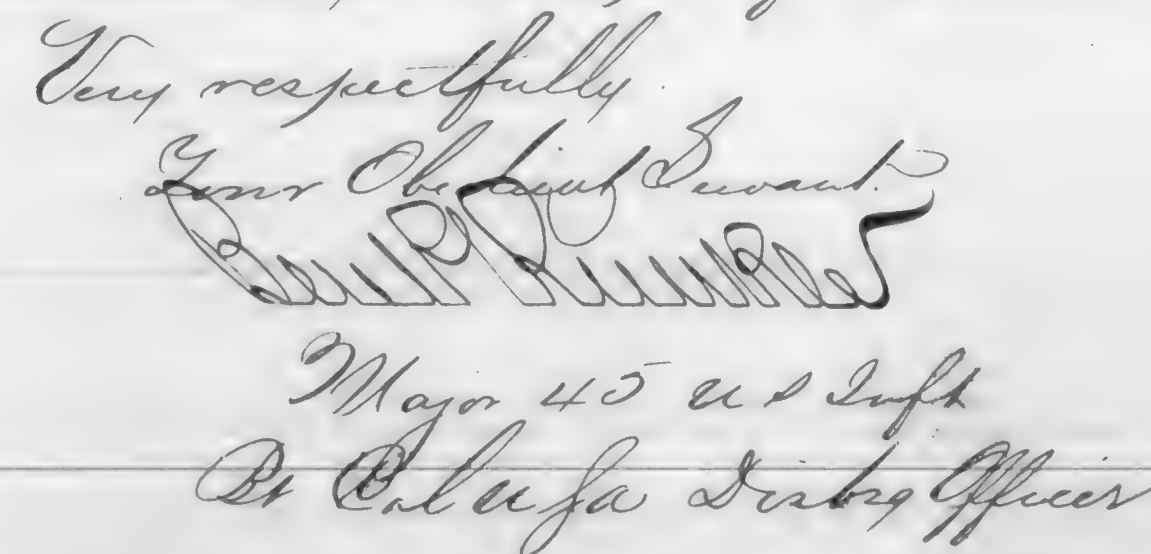 Very respectfully
Your Obedient Servant.
Ben P Runkle
Major 45 U S Inft
Bt Col U S A Disbrg Officer